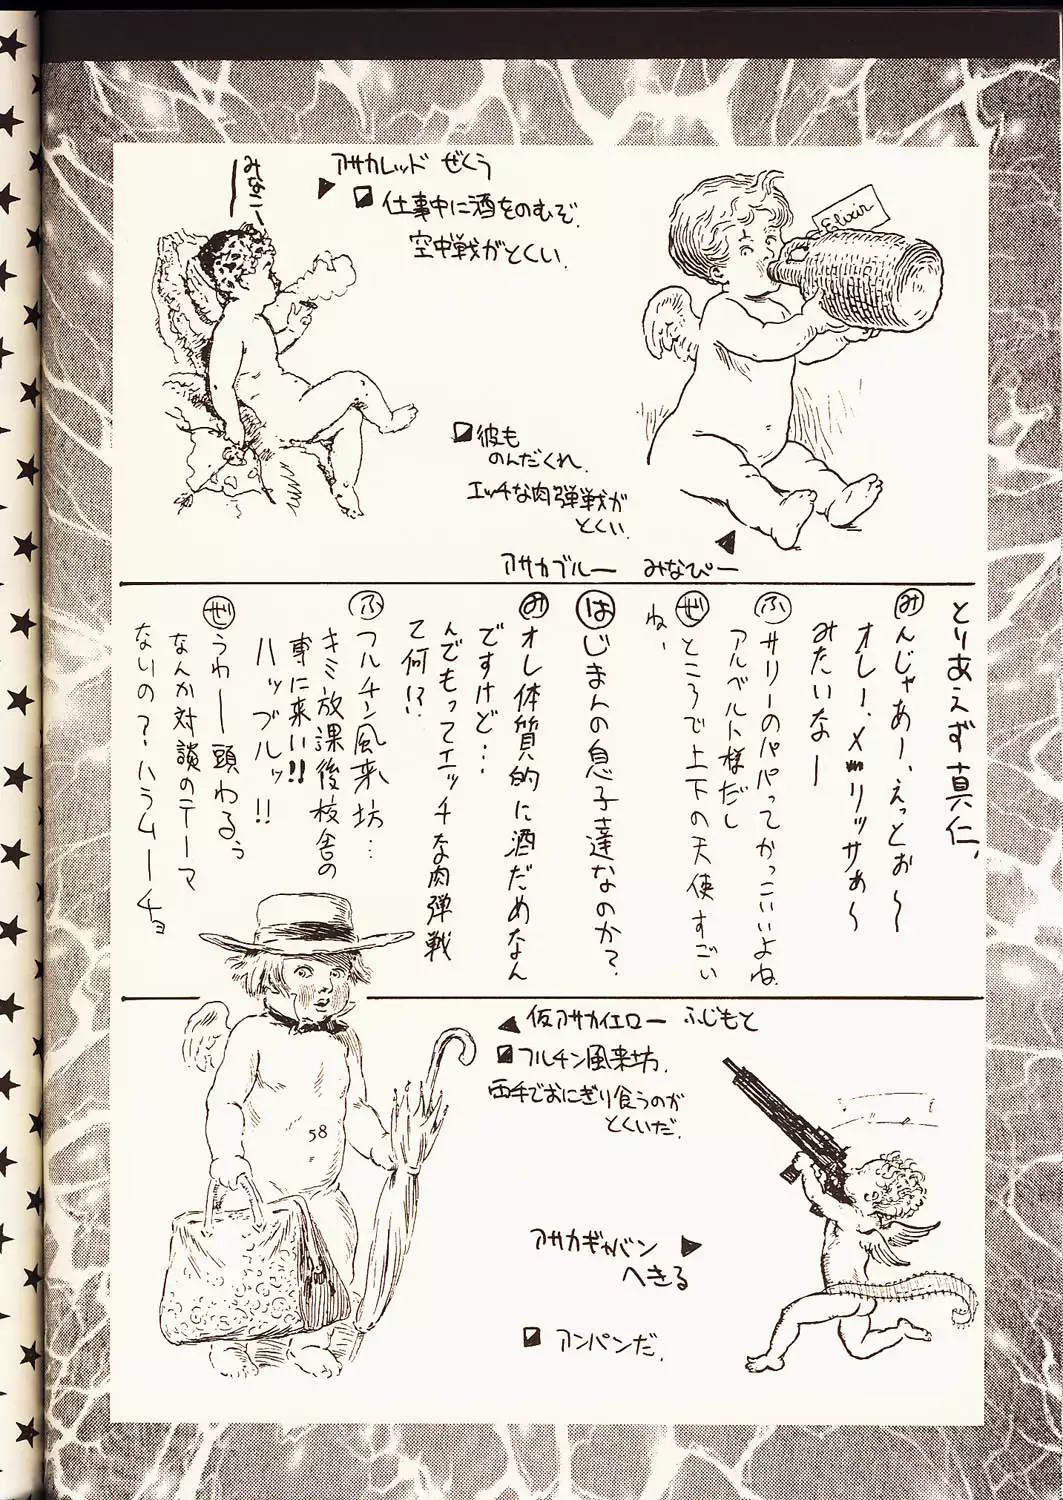 みなこへ
アサカレッド ぜくう
仕事中に酒をのむぞ.
空中戦がとくい.
Elixir
彼も
のんだくれ.
エッチな肉弾戦が
とくい.
アサカブルー みなぴー
とりあえず真仁、
み んじゃあー、えっとぉ〜
オレー、メリッサぁ〜
みたいなー
ふ サリーのパパってかっこいいよね.
アルベルト様だし
ぜ ところで上下の天使すごい
ね、
は じまんの息子達なのか?
み オレ体質的に酒だめなん
ですけど…
んでもってエッチな肉弾戦
て何!?
ふ フルチン風来坊…
キミ放課後校舎の
裏に来い!!
ハッブルッ!!
ぜ うわー頭わるぅ
なんか対談のテーマ
ないの?ハラムーチョ
仮アサカイエロー ふじもと
フルチン風来坊.
両手でおにぎり食うのが
とくいだ.
58
アサカギャバン
へきる
アンパンだ.